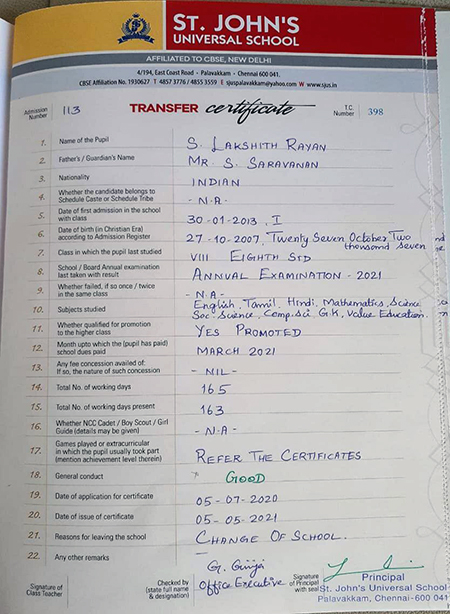 ST. JOHN'S
UNIVERSAL SCHOOL
AFFILIATED TO CBSE, NEW DELHI
4/194, East Coast Road · Palavakkam · Chennai 600 041.
CBSE Affiliation No. 1930627 T 4857 3776 / 4855 3559 E sjuspalavakkam@yahoo.com W www.sjus.in
Admission Number 113 TRANSFER certificate T.C. Number 398
1. Name of the Pupil S. LAKSHITH RAYAN
2. Father's / Guardian's Name MR. S. SARAVANAN
3. Nationality INDIAN
4. Whether the candidate belongs to Schedule Caste or Schedule Tribe - N.A -
5. Date of first admission in the school with class 30-01-2013, I
6. Date of birth (in Christian Era) according to Admission Register 27-10-2007, Twenty Seven October Two thousand seven
7. Class in which the pupil last studied VIII EIGHTH STD
8. School / Board Annual examination last taken with result ANNUAL EXAMINATION - 2021
9. Whether failed, if so once / twice in the same class - N.A -
10. Subjects studied English, Tamil, Hindi, Mathematics, Science
Soc. Science, Comp.sci, G.K, Value Education.
11. Whether qualified for promotion to the higher class YES PROMOTED
12. Month upto which the (pupil has paid) school dues paid MARCH 2021
13. Any fee concession availed of: If so, the nature of such concession - NIL -
14. Total No. of working days 165
15. Total No. of working days present 163
16. Whether NCC Cadet / Boy Scout / Girl Guide (details may be given) - N.A -
17. Games played or extracurricular in which the pupil usually took part (mention achievement level therein) REFER THE CERTIFICATES
18. General conduct GOOD
19. Date of application for certificate 05-07-2020
20. Date of issue of certificate 05-05-2021
21. Reasons for leaving the school CHANGE OF SCHOOL.
22. Any other remarks
Signature of Class Teacher
Checked by (state full name & designation)
Office Executive
Signature of Principal with seal
Principal
St. John's Universal School
Palavakkam, Chennai-600 041